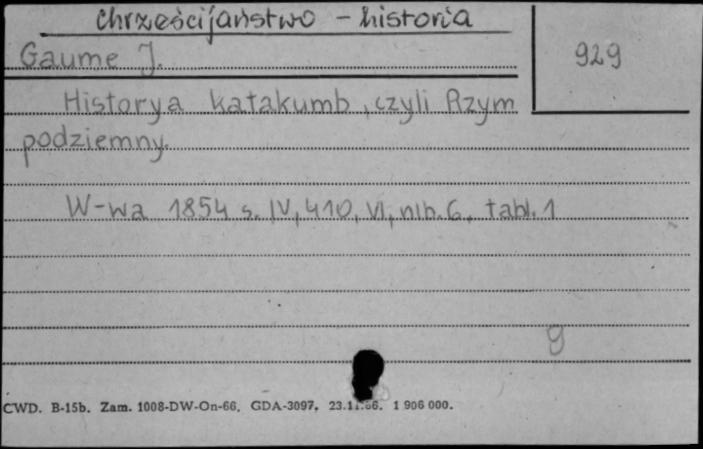 chrześcijaństwo - historia
Gaume J.
929
Historya katakumb, czyli Rzym
podziemny.
W-wa 1854 s. IV, 410, VI, nlb. 6, tabl. 1
g
CWD. B-15b. Zam. 1008-DW-On-66. GDA-3097. 23.11.66. 1 906 000.